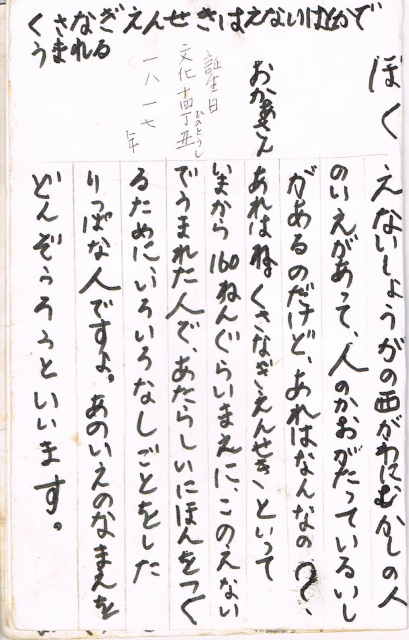 くさなぎえんせきはえないは出で
うまれる
ぼく
えないしょうがの西がわにむかしの人
のいえがあって、人のかおがたっているいし
があるのだけど、あれはなんなの?、
おかあさん
あれはねくさなぎえんせきといって
誕生日
文化十四丁丑
ひのとうし
一八一七年
いまから160ねんぐらいまえに、このえない
でうまれた人で、あたらしいにほんをつく
るためにいろいろなしごとをした
りっぱな人ですよ。あのいえのなまえを
どんぞうろうといいます。